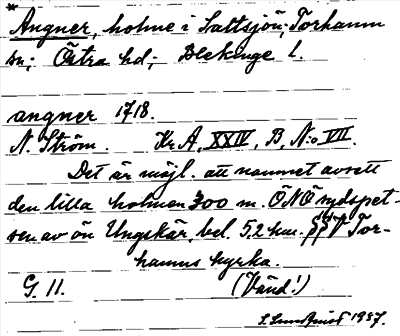 *
Angner, holme i Saltsjön; Torhamn
sn; Östra hd; Blekinge l.
angner 1718.
N. Ström. Kr. A, XXIV, B, No VII.
Det är möjl. att namnet avsett
den lilla holmen 300 m. ÖNÖ sydspet-
sen av ön Ungskär, bel. 5,2 km. Tor-
hamns kyrka.
G. 11. (Vänd!)
S. Lundqvist 1937.